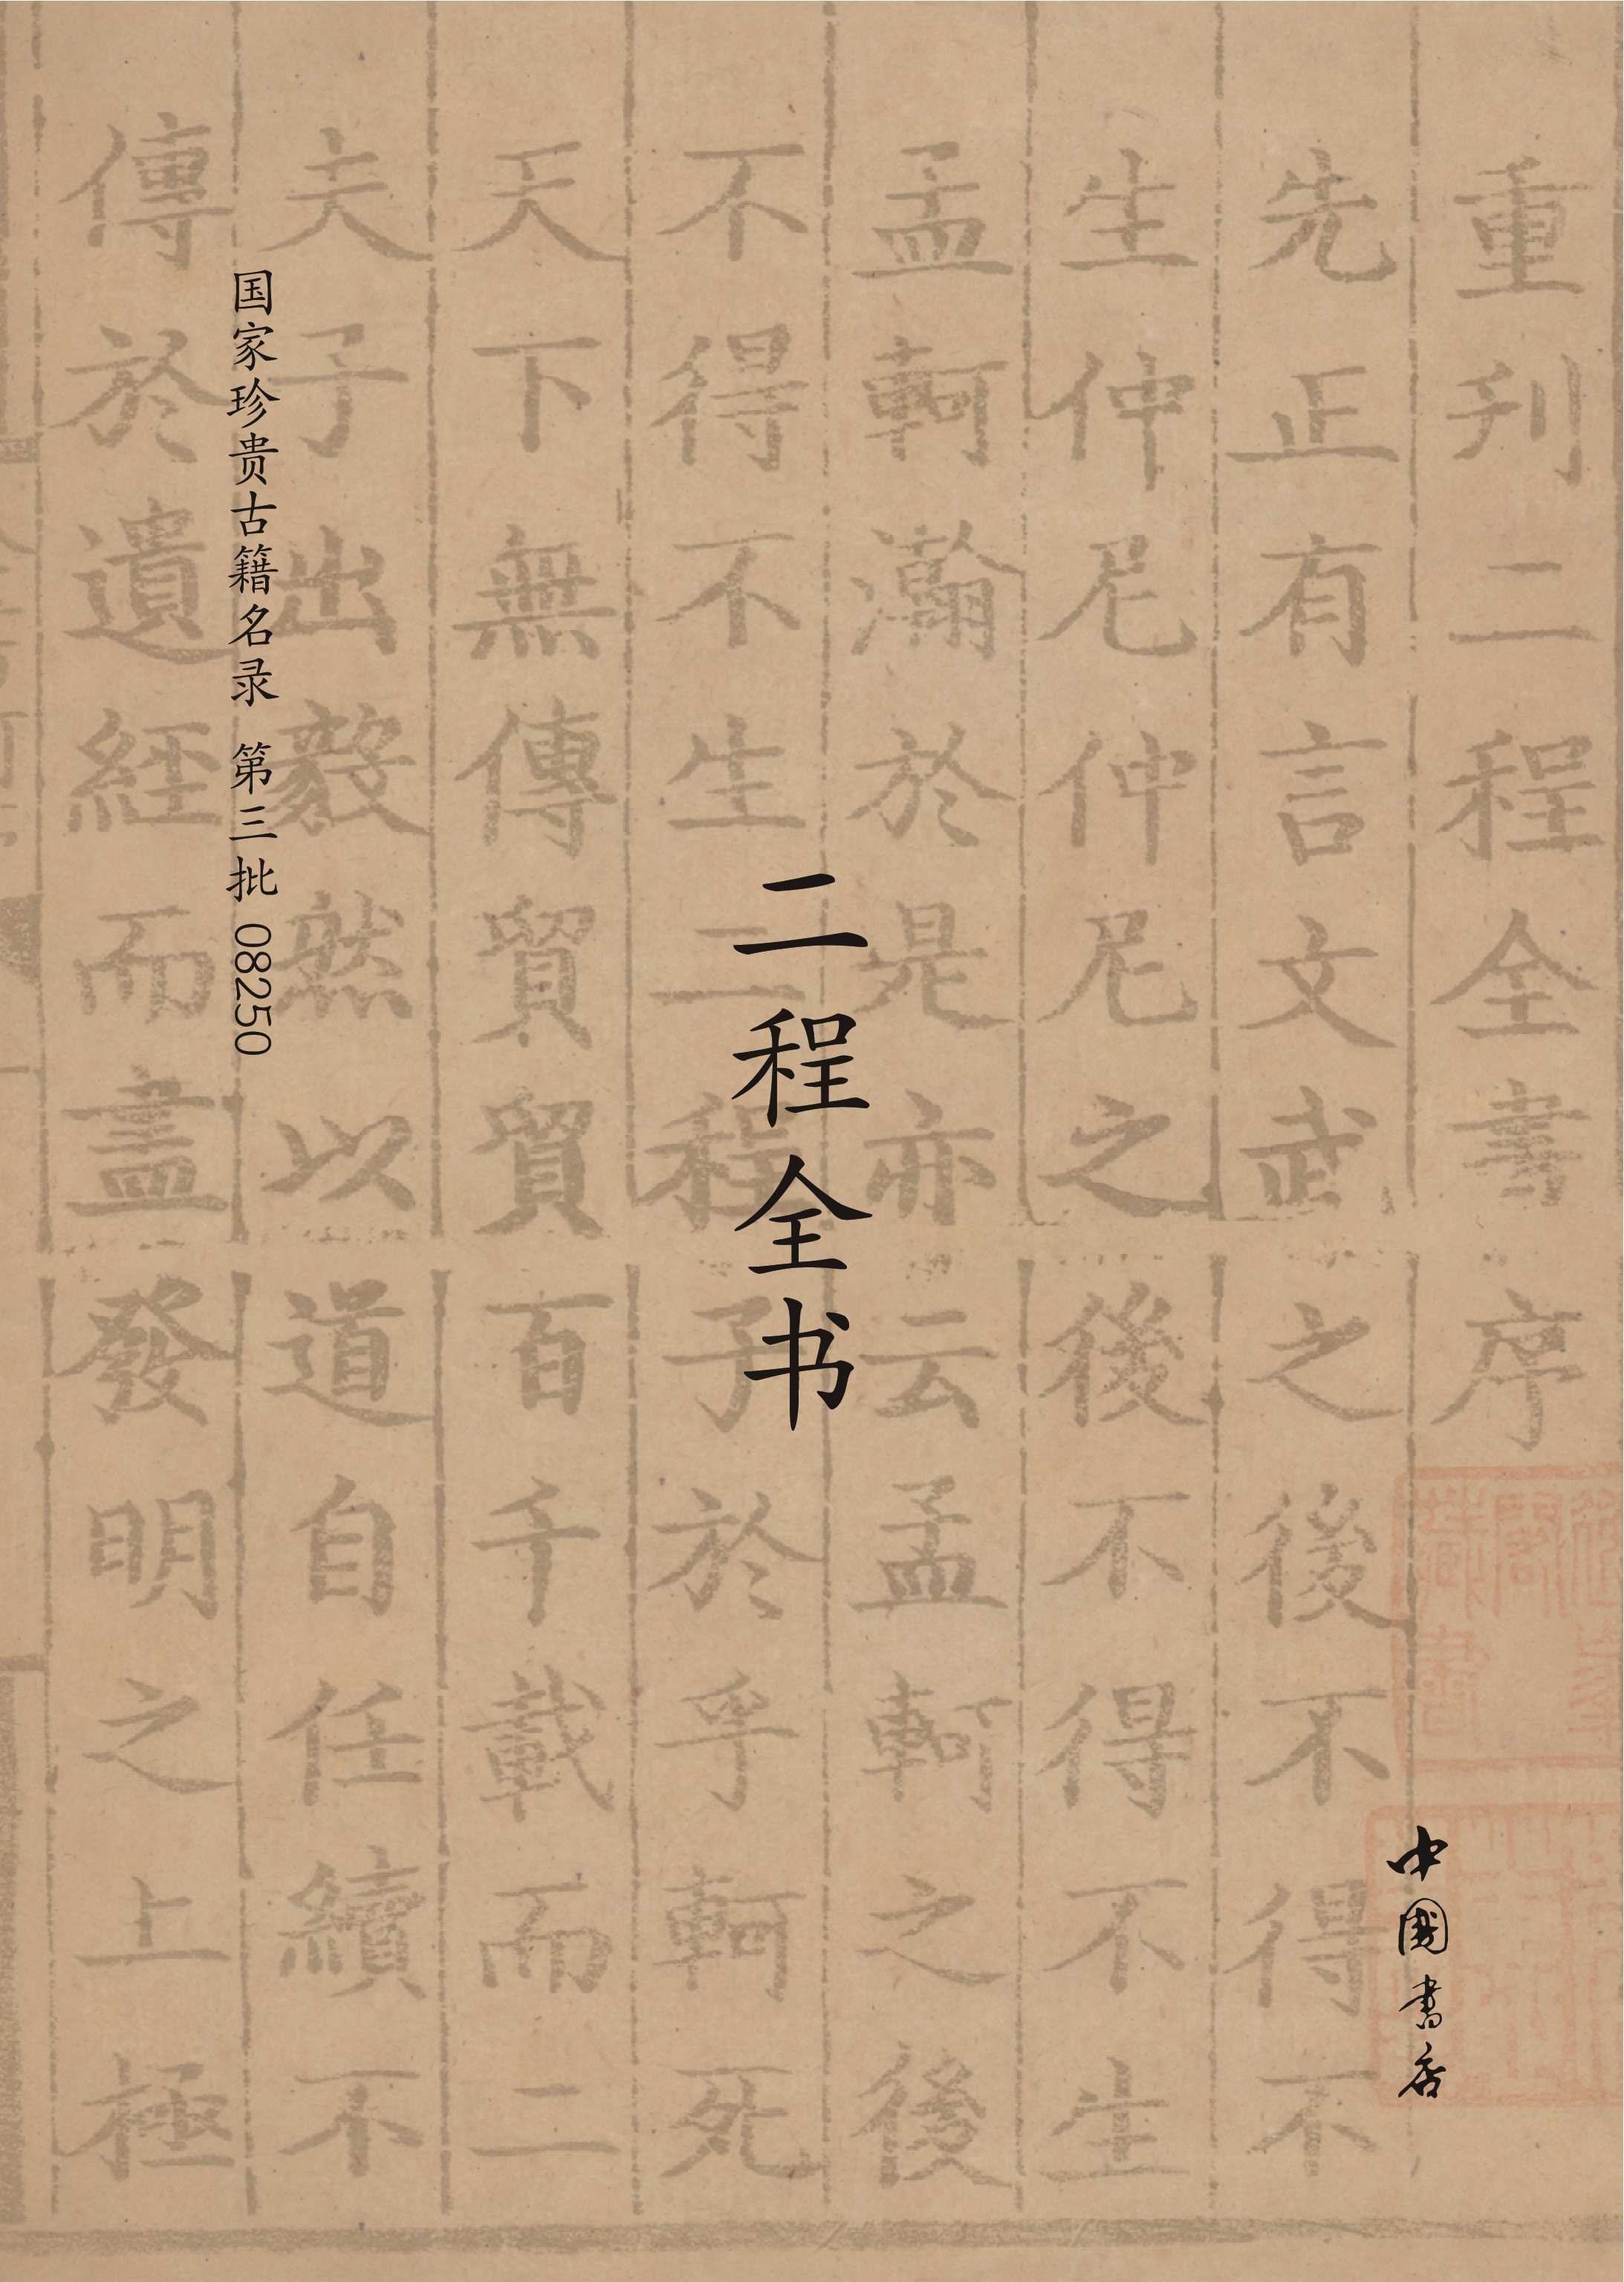 重刊二程全書序
先正有言文武之後不得不
生仲尼仲尼之後不得不生
孟軻瀚於是亦云孟軻之後
不得不生二程子於乎軻死
天下無傳貿貿百千載而二
夫子出毅然以道自任續不
傳於遺經而盡發明之上極
二程全书
国家珍贵古籍名录 第三批 08250
中國書店